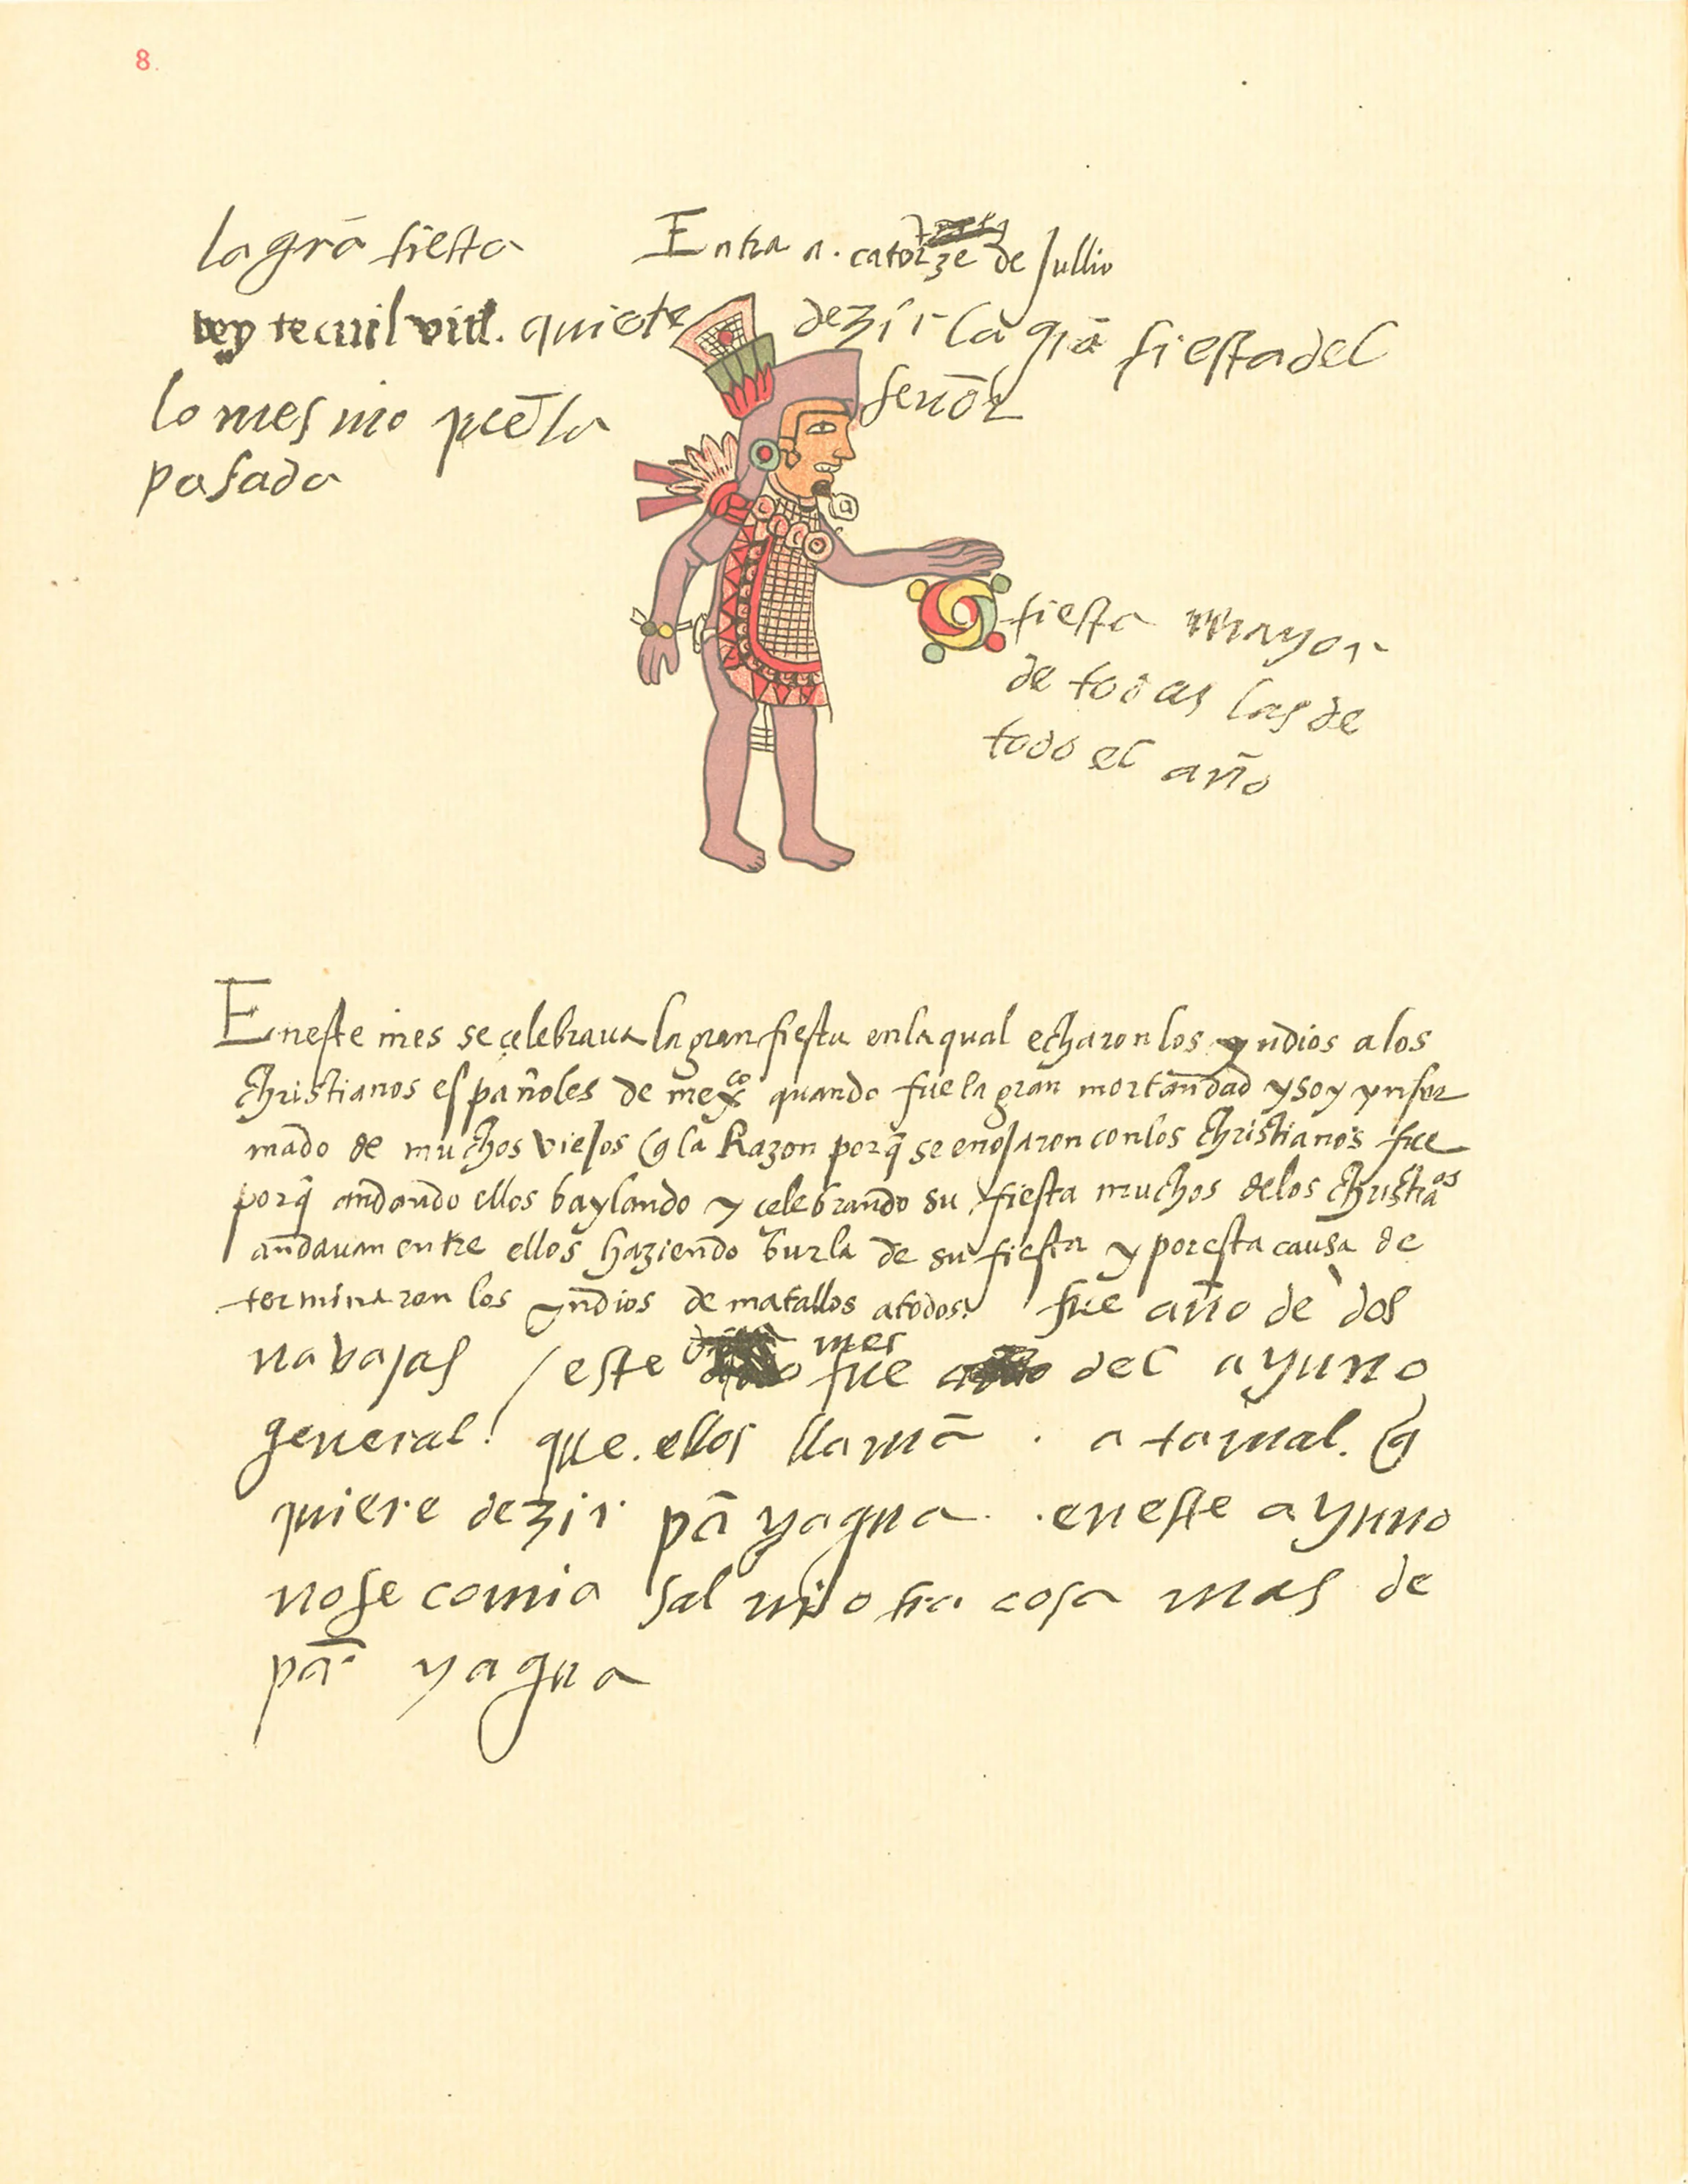 8.
la grā fiesta
Entra a. catorze de Jullio
vey tecuilvitl. quiere dezir la grā fiesta del
señor
lo mesmo q̄ la
pasada
fiesta mayor
de todas las de
todo el año
En este mes se çelebraua la gran fiesta en la qual echaron los yndios a los
christianos españoles de mexco quando fue la gran mortandad y soy ynfor
mado de muchos viejos q la Razon porq̄ se enojaron con los christianos fue
porq̄ andando ellos baylando y çelebrando su fiesta muchos de los christiaos
andauan entre ellos haziendo burla de su fiesta y por esta causa de
terminaron los yndios de matallos a todos. fue año de dos
navajas / este mes fue del ayuno
general! que ellos llamā . atamal. q
quiere dezir pā yagua . en este ayuno
no se comia sal ni otra cosa mas de
pā yagua